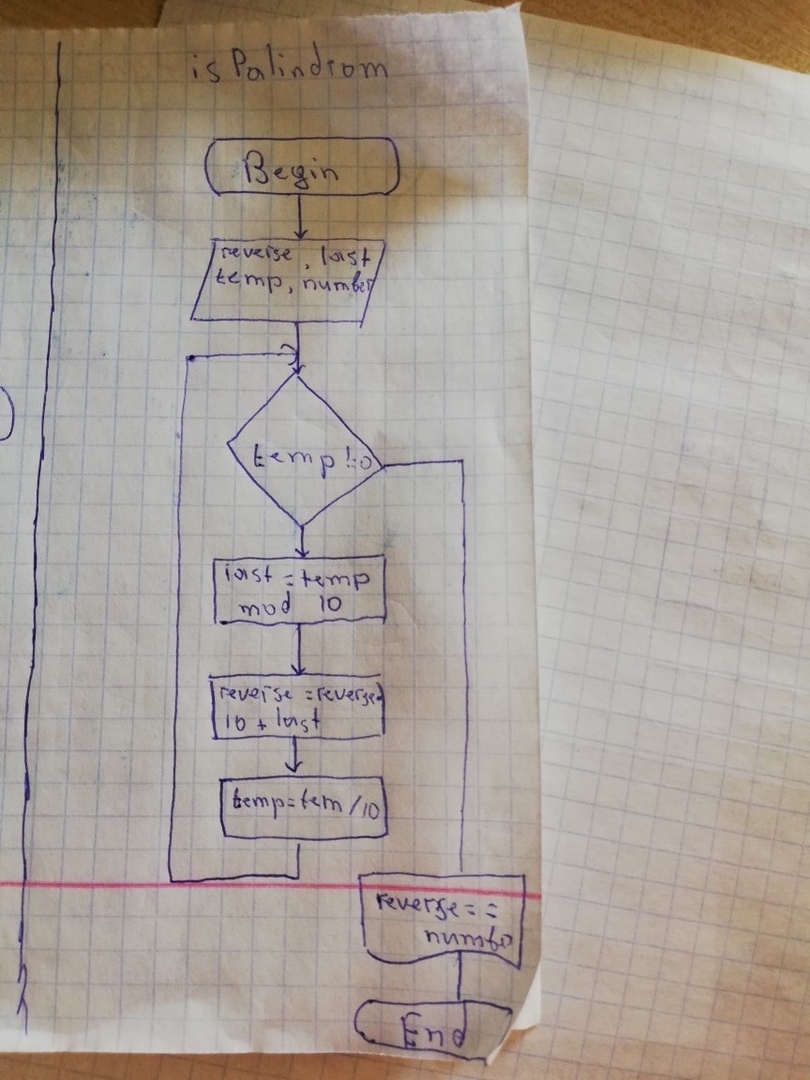 isPalindrom
Begin
reverse, last
temp, number
temp !=0
last = temp
mod 10
reverse = reverse*
10 + last
temp=tem/10
reverse==
number
End